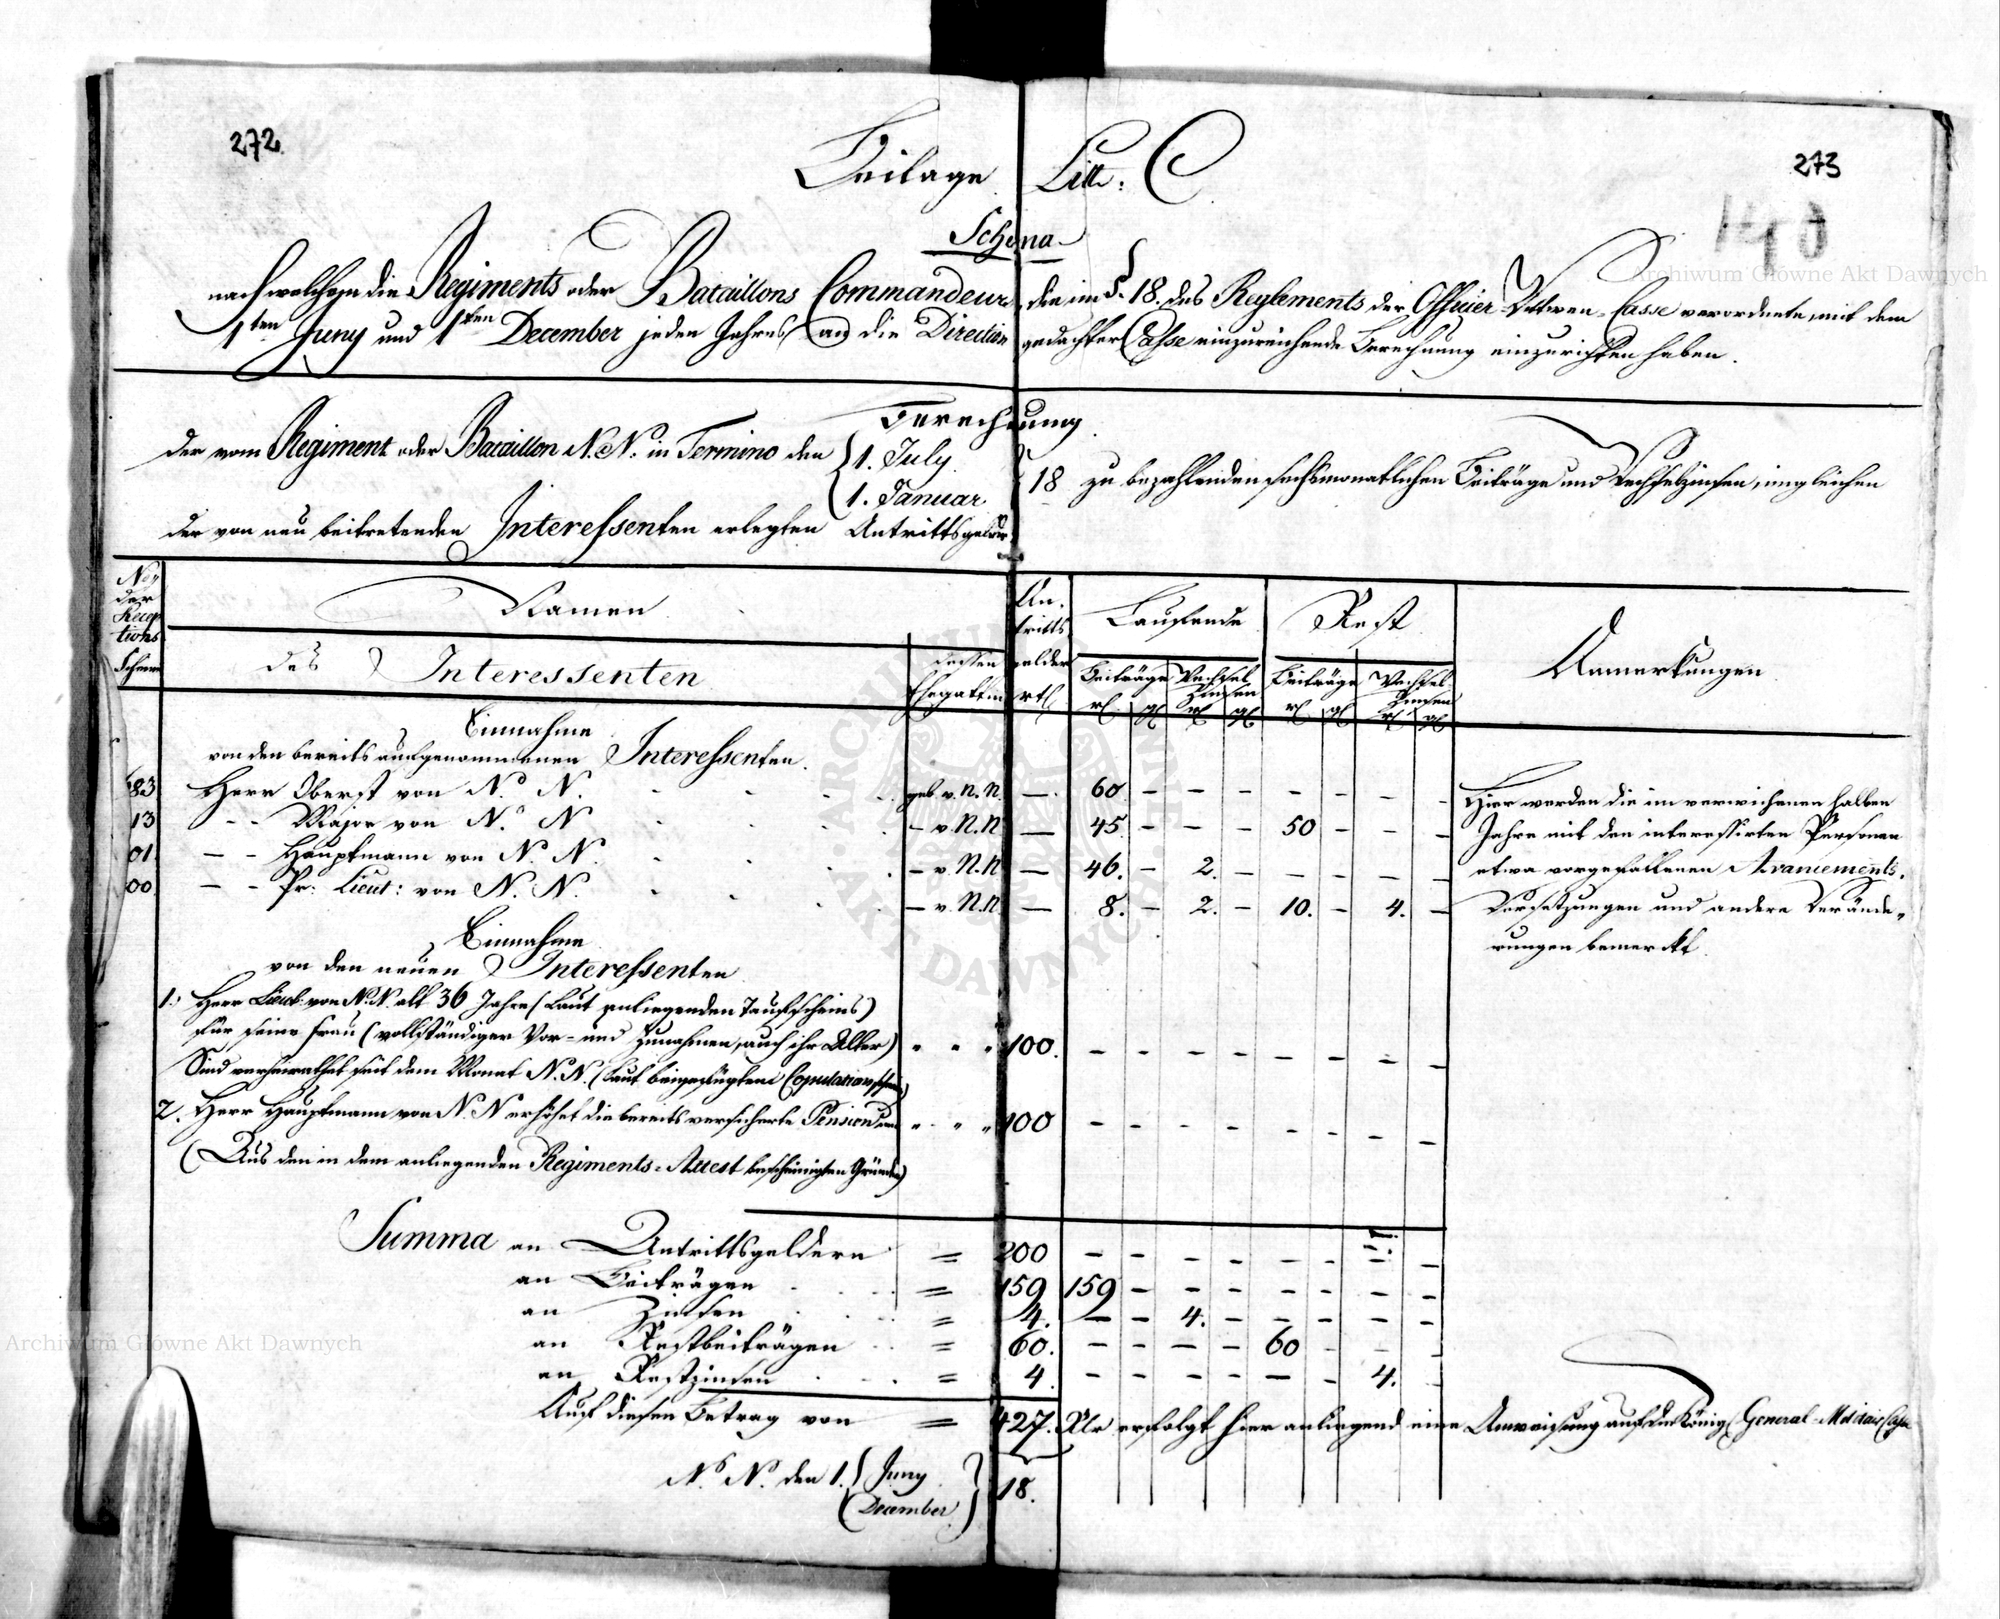 272.
273
Beilage Litt: C
Schema
nach welchem die Regiments oder Bataillons Commandeurs, die im §. 18. des Reglements der Officier-Wittwen-Casse verordnete, mit dem
1ten Juny und 1ten December jeden Jahres an die Direction gedachter Casse einzureichende Berechnung einzurichten haben.
Berechnung
der vom Regiment oder Bataillon N. N. in Termino den { 1. July. 1. Januar } 18 zu bezahlenden sechsmonatlichen Beiträge und Wechselzinsen, imgleichen
der von neu beitretenden Interessenten erlegten Antrittsgelder.
No der Receptions Scheine
Namen
des Interessenten
dessen Ehegattin
Antrittsgelder rtl
Laufende
Beiträge rl gl
Wechsel Zinsen rl gl
Rest
Beiträge rl gl
Wechsel Zinsen rl gl
Anmerkungen
Einnahme
von den bereits aufgenommenen Interessenten.
83 Herr Oberst von N. N. geb. v. N. N. — 60. — — — — — — —
13 - - Major von N. N. — v. N. N. — 45. — — — 50 — — —
01. — - Hauptmann von N. N. — v. N. N. — 46. — 2. — — — — —
00 — - Pr: Lieut: von N. N. — v. N. N. — 8. — 2. — 10. — 4. —
Hier werden die im verwichenen halben
Jahre mit den interessirten Personen
etwa vorgefallenen Avancements,
Versetzungen und andere Verände-
rungen bemerkt.
Einnahme
von den neuen Interessenten
1.) Herr Lieut: von N. N. alt 36 Jahre (Laut anliegenden Taufscheins)
für seine Frau (vollständiger Vor- und Zunahmen, auch ihr Alter) " " " 100. — — — — — — — —
Sind verheirathet seit dem Monat N. N. (Laut beigefügtem Copulationsschein)
2. Herr Hauptmann von N. N. erhöhet die bereits versicherte Pension um " " " 100 — — — — — — — —
(Aus den in dem anliegenden Regiments-Attest bescheinigten Gründen)
Summa an Antrittsgeldern = 200 — — — — — — — —
an Beiträgen = 159 159 — — — — — — —
an Zinsen = 4. — — 4. — — — — —
an Restbeiträgen = 60. — — — — 60 — — —
an Restzinsen = 4. — — — — — — 4. —
Auf diesen Betrag von = 427. Rtlr erfolgt hier anliegend eine Anweisung auf die Königl General-Militair Casse
N. N. den 1. { Juny December } 18.
Archiwum Główne Akt Dawnych
Archiwum Główne Akt Dawnych
ARCHIWUM GŁÓWNE AKT DAWNYCH